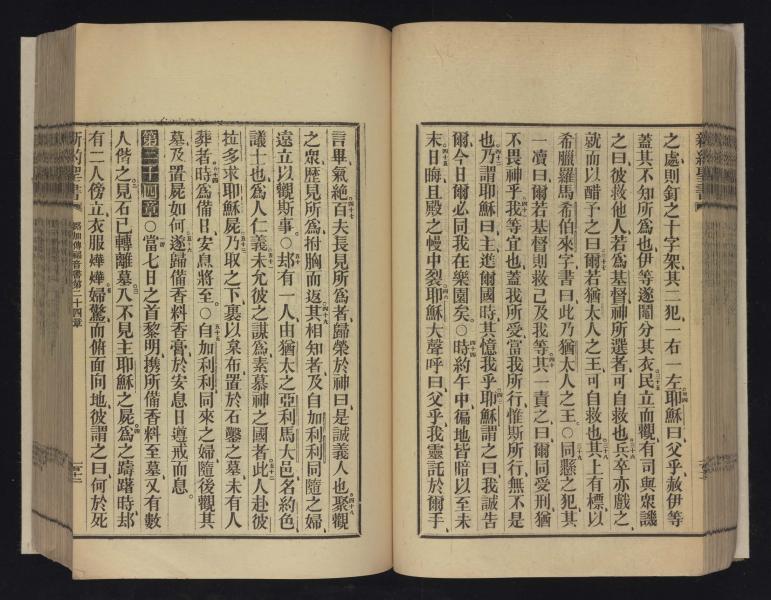 新約聖書
之處則釘之十字架其二犯一右一左耶穌曰父乎赦伊等
蓋其不知所爲也伊等遂鬮分其衣民立而觀有司與衆譏
之曰彼救他人若爲基督神所選者可自救也兵卒亦戲之
就而以醋予之曰爾若猶太人之王可自救也其上有標以
希臘羅馬希伯來字書曰此乃猶太人之王○同懸之犯其
一凟曰爾若基督則救己及我等其一責之曰爾同受刑猶
不畏神乎我等宜也蓋我所受當我所行惟斯所行無不是
也乃謂耶穌曰主進爾國時其憶我乎耶穌謂之曰我誠告
爾今日爾必同我在樂園矣○時約午中徧地皆暗以至未
末日晦且殿之幔中裂耶穌大聲呼曰父乎我靈託於爾手
言畢氣絶百夫長見所爲者歸榮於神曰是誠義人也聚觀
之衆歴見所爲拊胸而返其相知者及自加利利同隨之婦
遠立以觀斯事○卻有一人由猶太之亞利馬大邑名約色
議士也爲人仁義未允彼之謀爲素慕神之國者此人赴彼
拉多求耶穌屍乃取之下裹以枲布置於石鑿之墓未有人
葬者時爲備日安息將至○自加利利同來之婦隨後觀其
墓及置屍如何遂歸備香料香膏於安息日遵戒而息
第二十四章○當七日之首黎明攜所備香料至墓又有數
人偕之見石已轉離墓入不見主耶穌之屍爲之躊躇時卻
有二人傍立衣服燁燁婦驚而俯面向地彼謂之曰何於死
新約聖書 路加傳福音書第二十四章